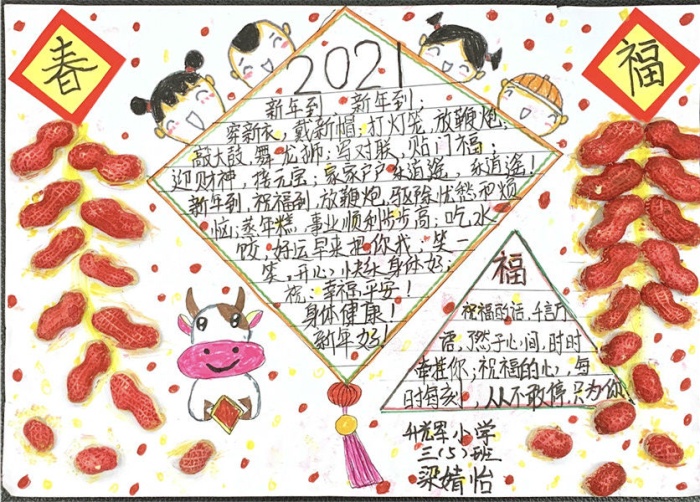 春
福
2021
新年到 新年到;
穿新衣,戴新帽;打灯笼,放鞭炮;
敲大鼓 舞龙狮;写对联,贴门福;
迎财神,接元宝;家家户户永逍遥,永逍遥!
新年到,祝福到,放鞭炮,驱除忧愁和烦
恼;蒸年糕,事业顺利步步高;吃水
饺,好运早来把你找;笑一
笑,开心快乐身体好;
祝:幸福平安!
身体健康!
新年好!
福
祝福的话,千言万
语,了然于心间,时时
牵挂你,祝福的心,每
时每刻,从不敢停,只为你
小学
三(5)班
梁婧怡